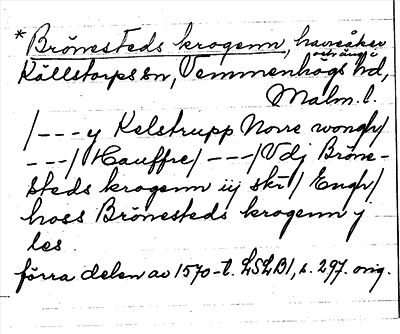 * Brönesteds krogenn, havreåker
och äng i
Källstorps sn, Vemmenhögs hd,
Malm. l.
/---y Kelstrupp Norre wongh/
---/ Hauffre/ ---/ Vdj Bröne-
steds krogenn iij skr/ Engh/
hoss Brönesteds krogenn j
les.
förra delen av 1570-t. LSLB1, s. 297. orig.